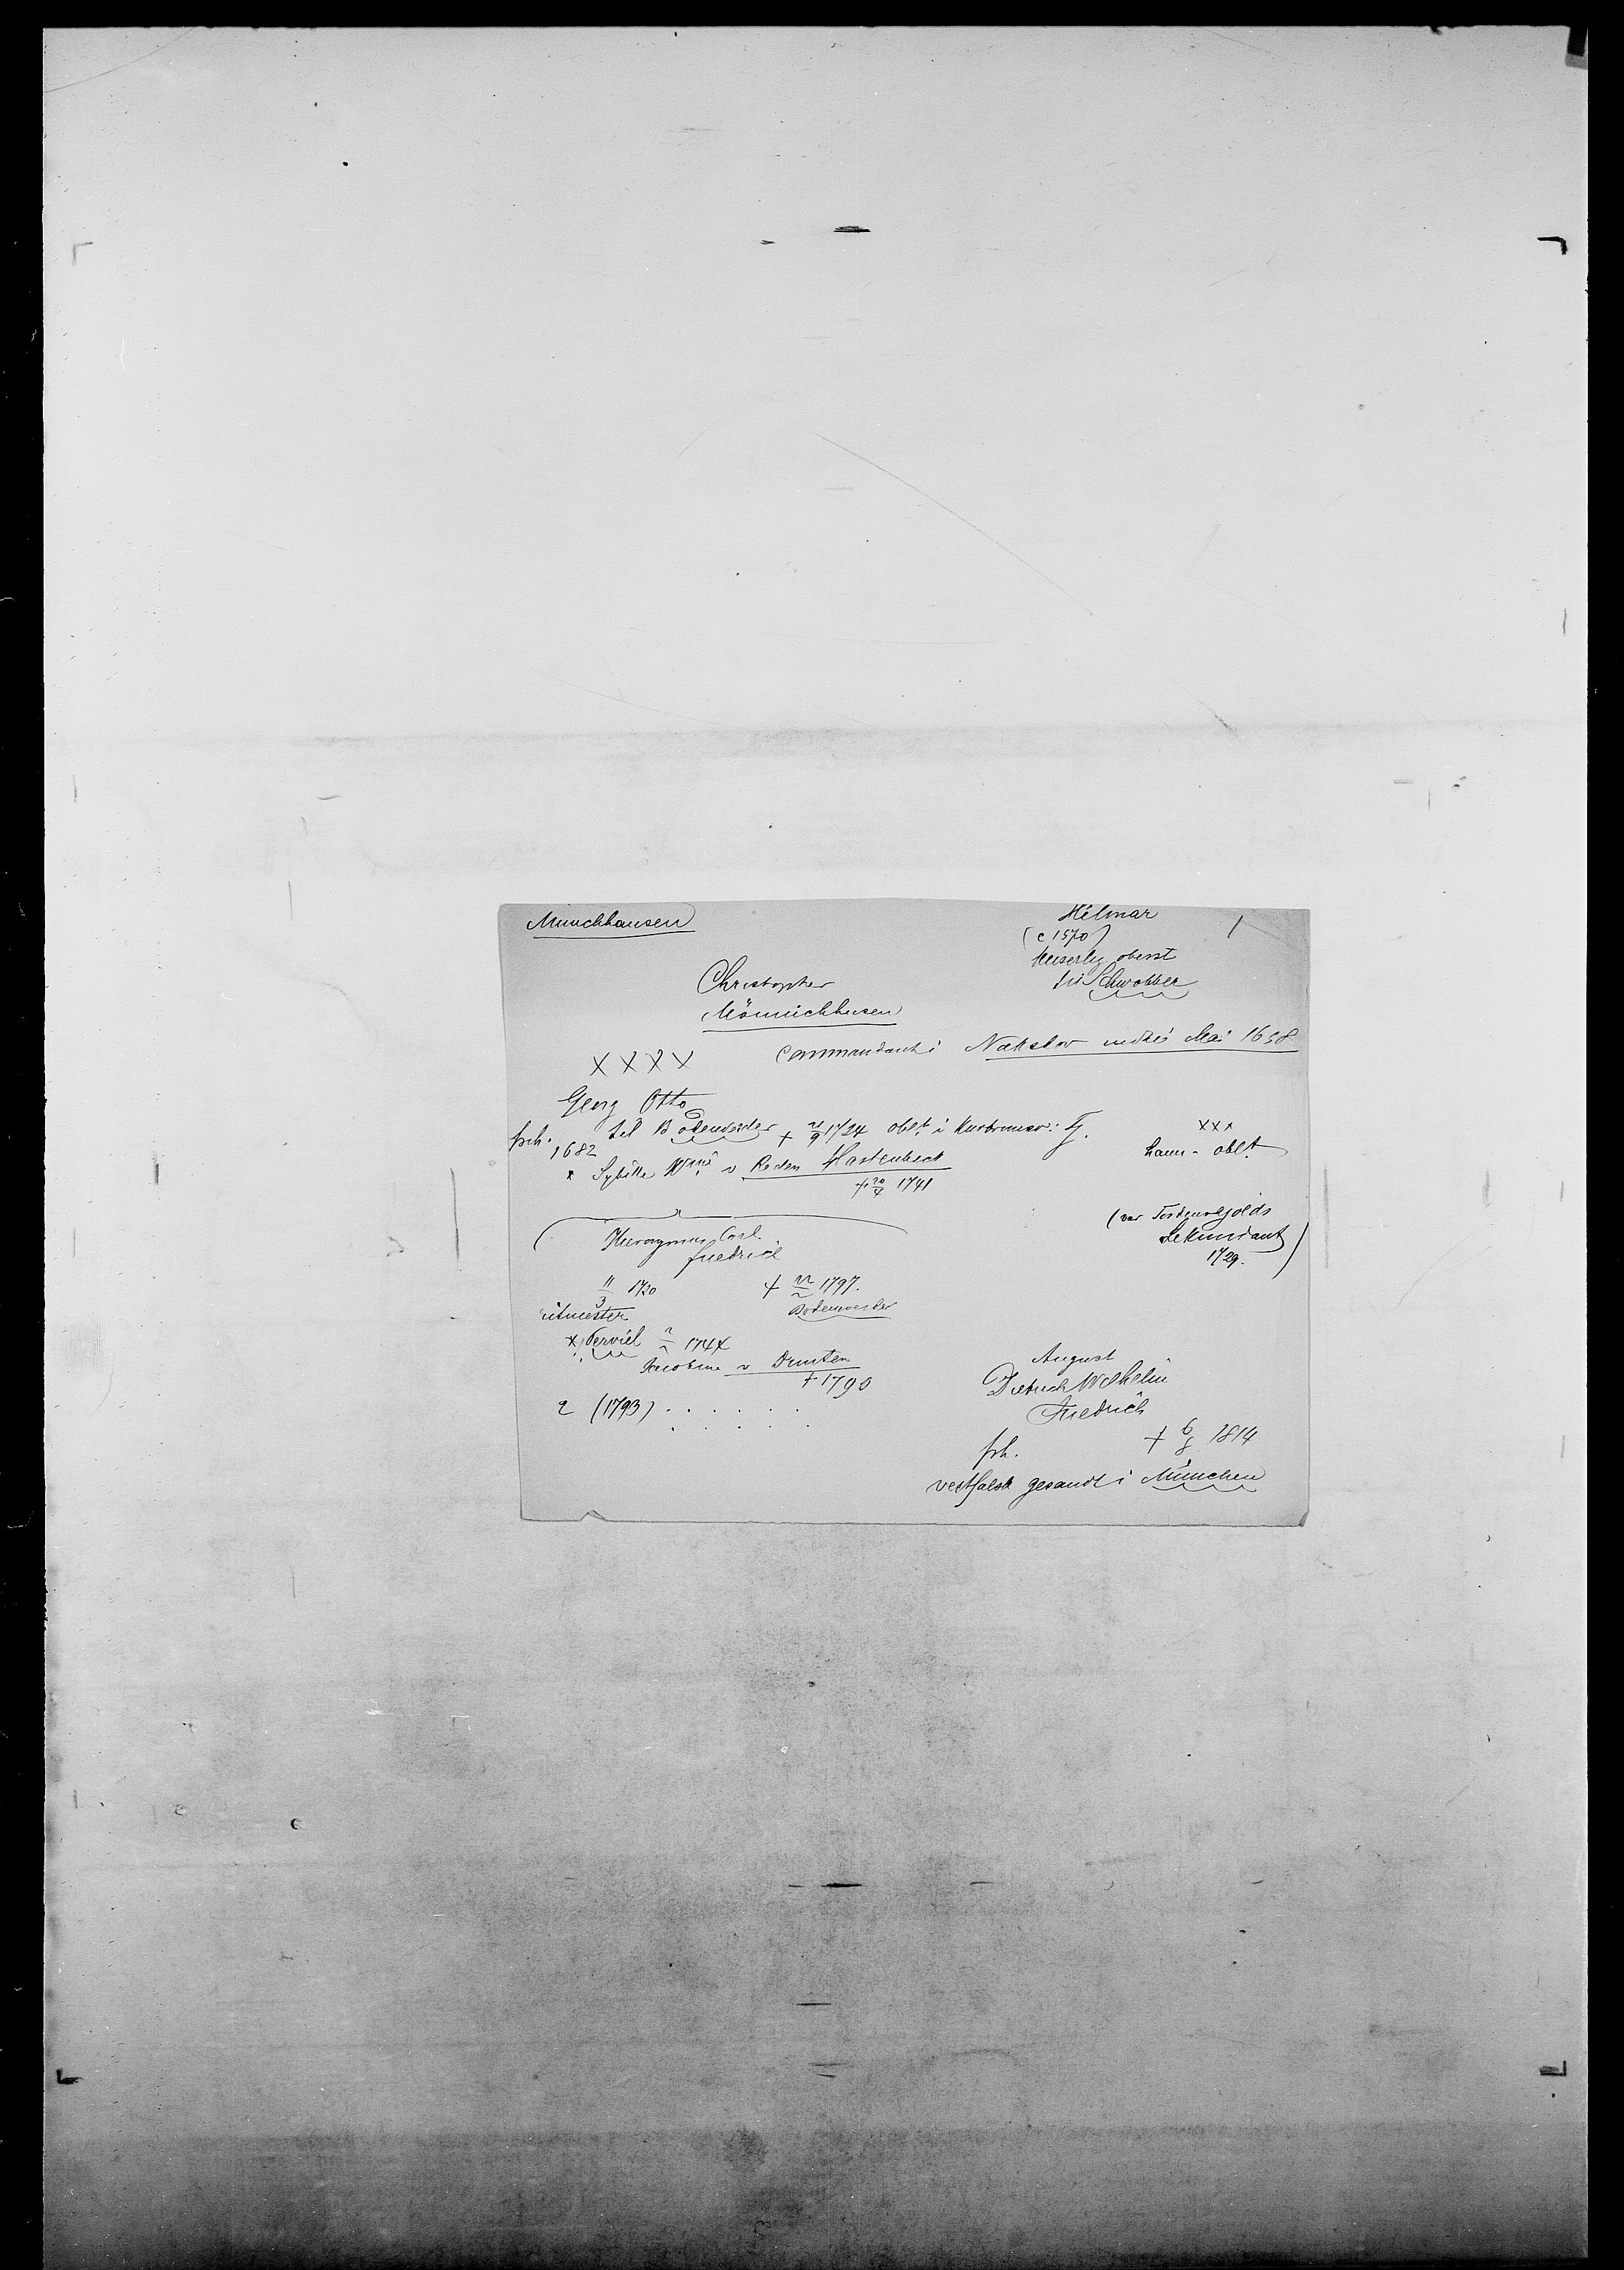 Münchhausen
Hilmar
(c 1570)
Keiserlig oberst
til Schwobber
1
Christopher
Mönnichhusen
commandant i Nakskov indtil Mai 1658
XXXX
Georg Otto
frh. til Bodenwerder + 1724 oblt. i Kurbraunsv: Tj.
1682
x Sybille v Reden Hastenbeck
+ 20/4 1741
xxx
hann. oblt
(var Tordenskjolds
Sekundant)
1729.
Hieronymus Carl
Friedrich
11/3 1720 + 22/2 1797.
ritmester Bodenwerder
x 2/2 1744
Jacobine v Dunten
+ 1790
2 (1793) . . . . . .
August
Dietrich Wilhelm
Friedrich
frh. + 6/8 1814
vestfalsk gesandt i München